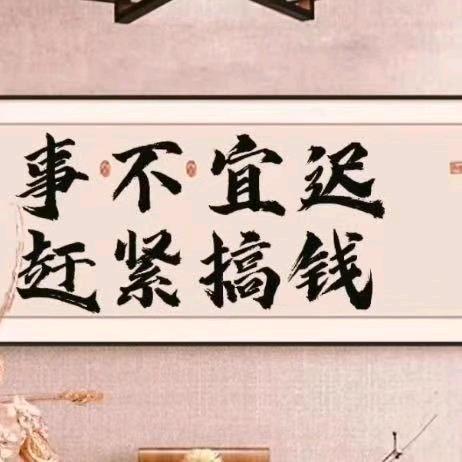 事不宜迟
赶紧搞钱